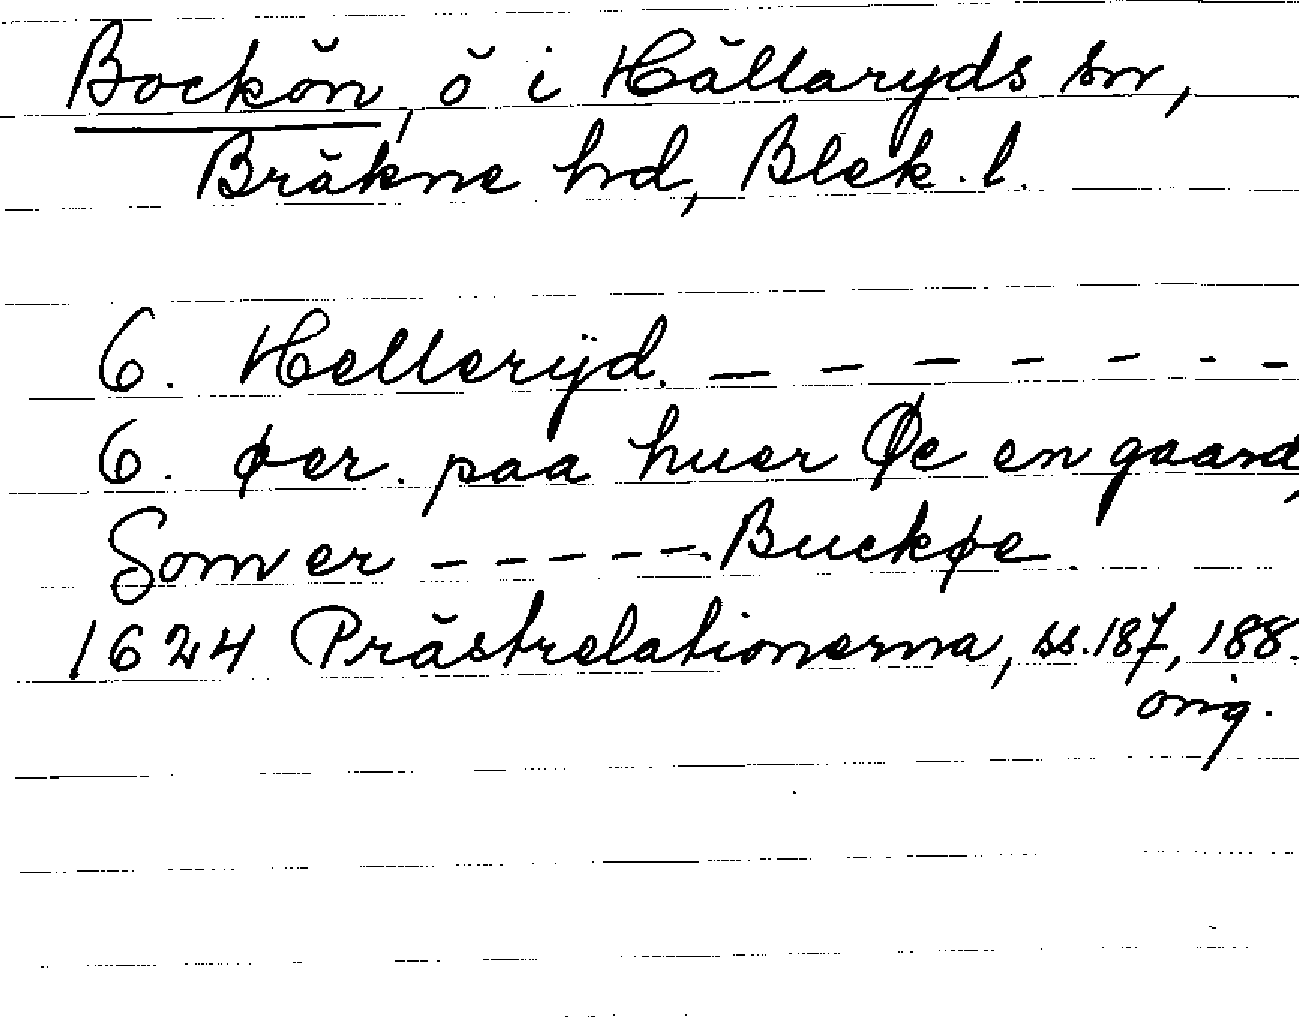 Bockön, ö i Hällaryds sn,
Bräkne hd, Blek. l.
6. Hellerÿd. – – – – – – –
6. øer. paa huer Øe en gaard,
Som er – – – – –. Buckøe.
1624 Prästrelationerna, ss. 187, 188.
orig.